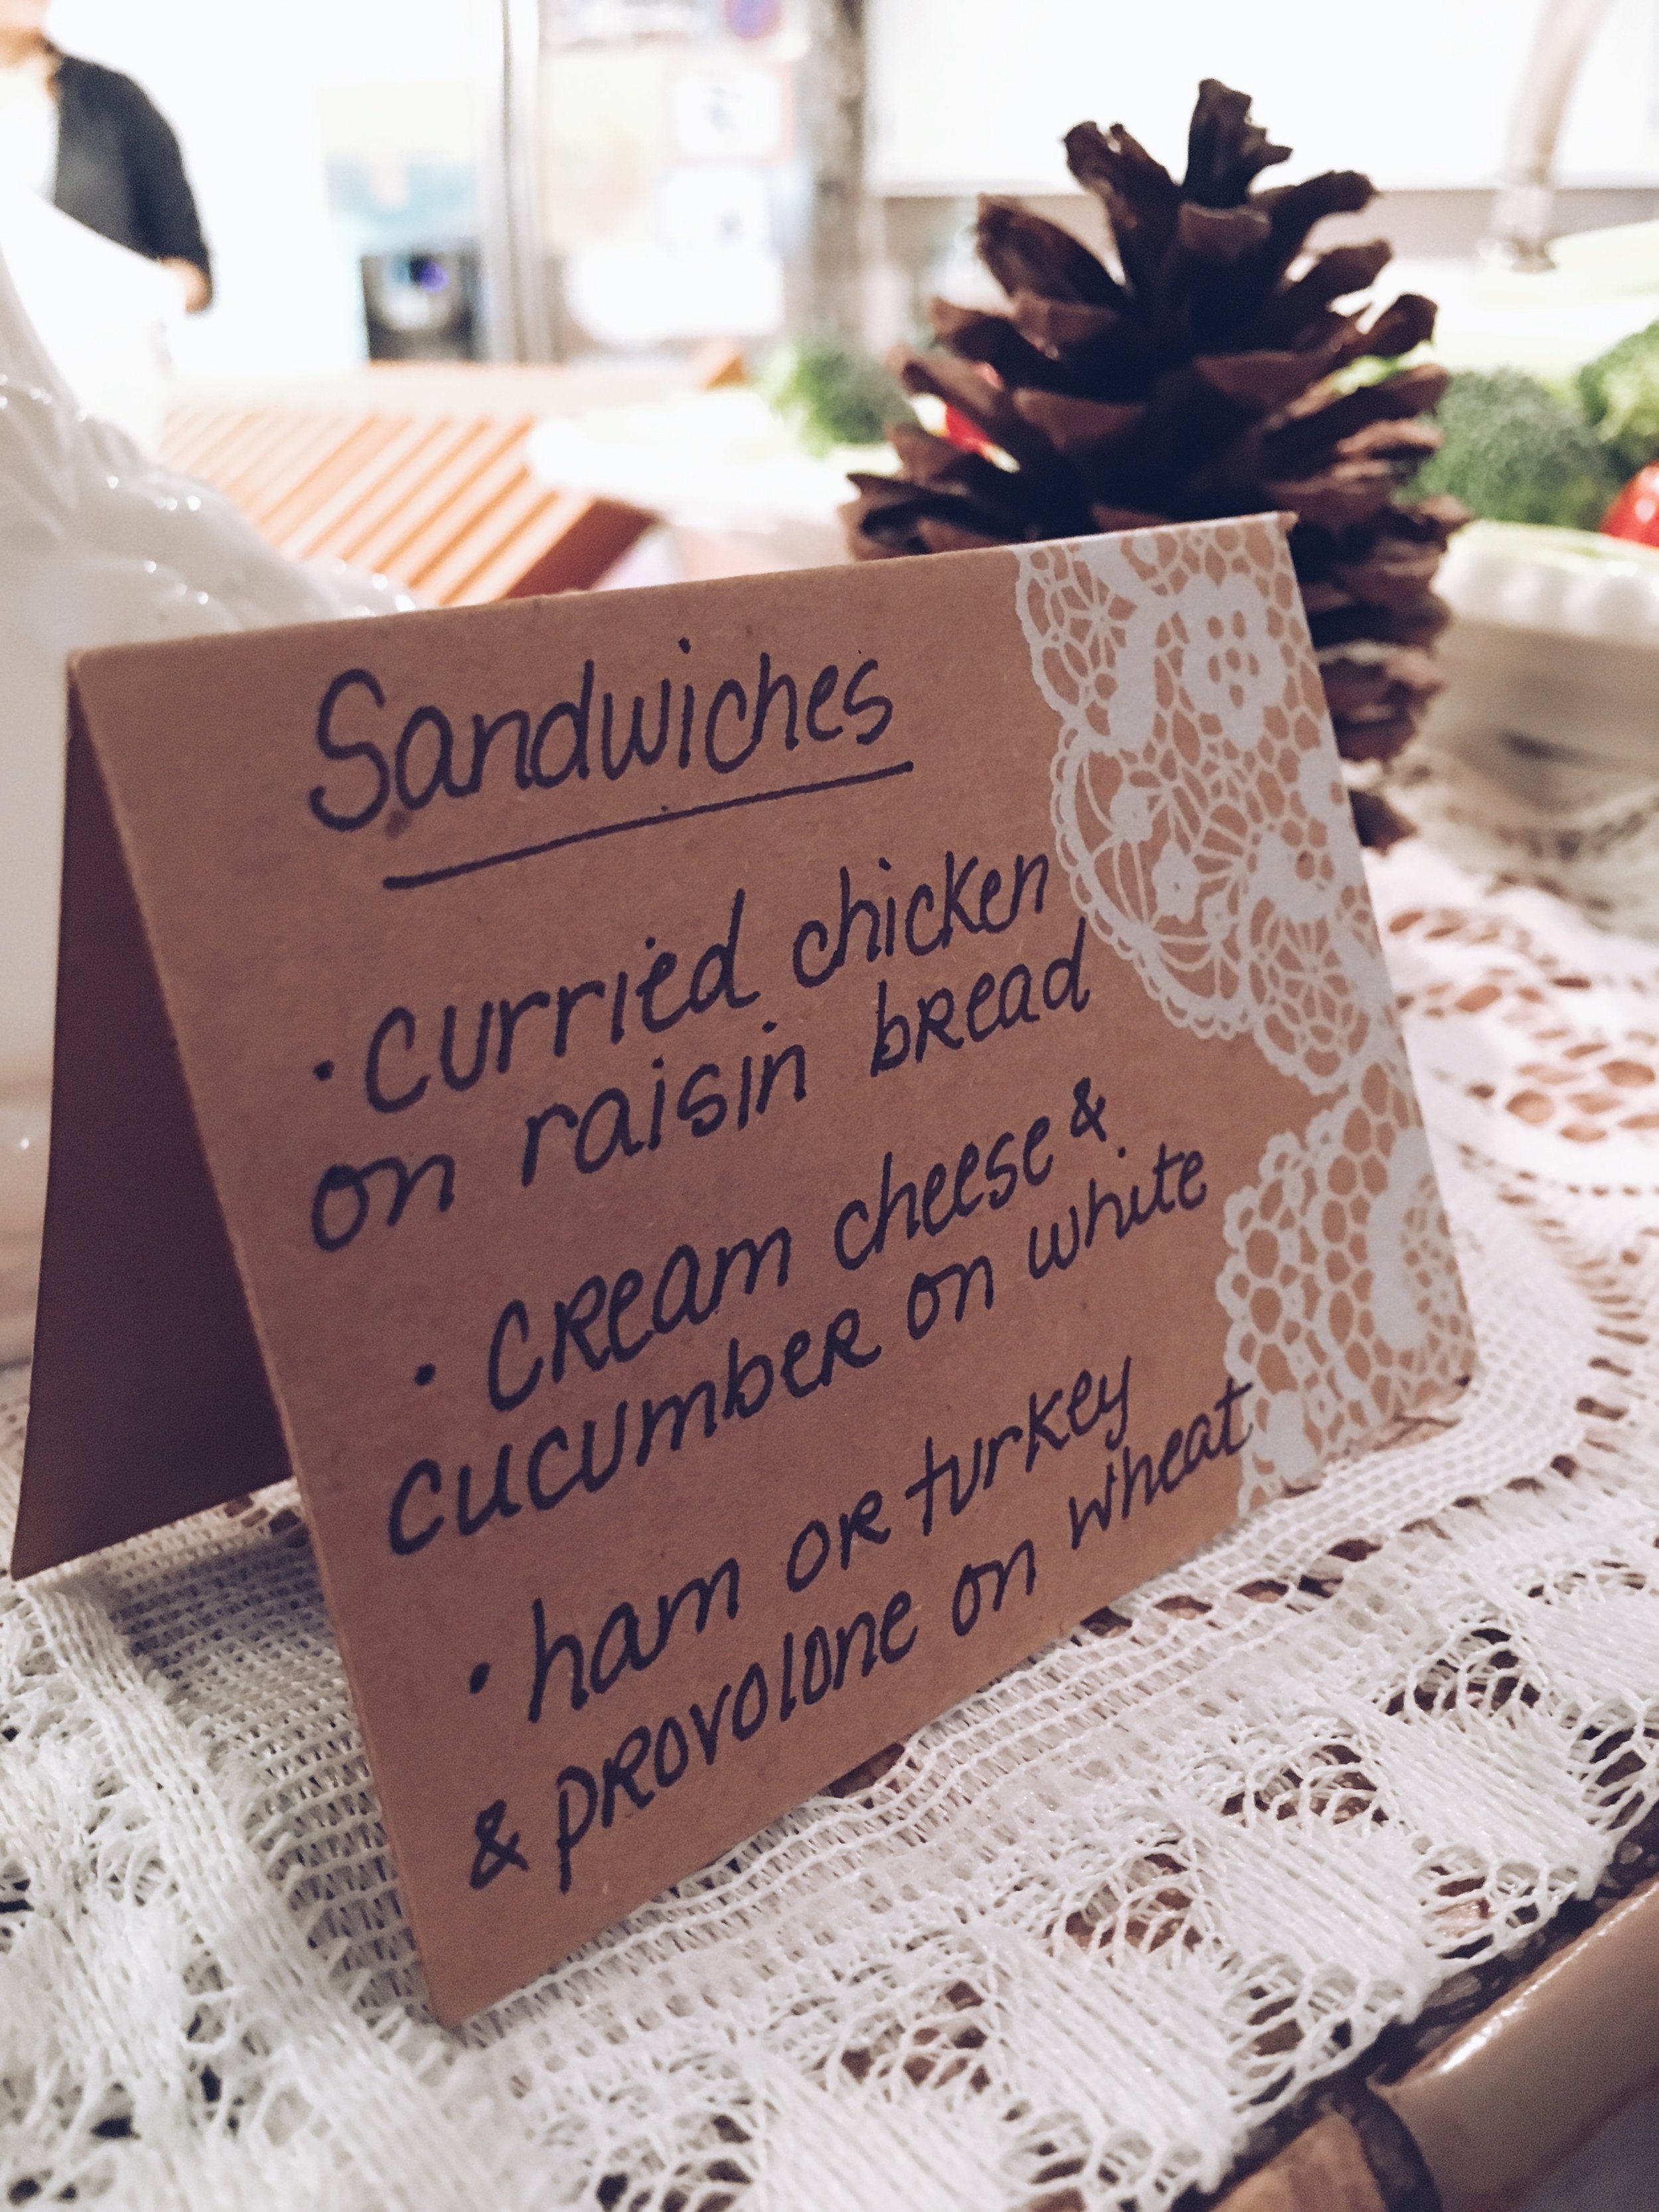 Sandwiches
· Curried chicken
on raisin bread
· Cream cheese &
cucumber on white
· ham or turkey
& provolone on wheat